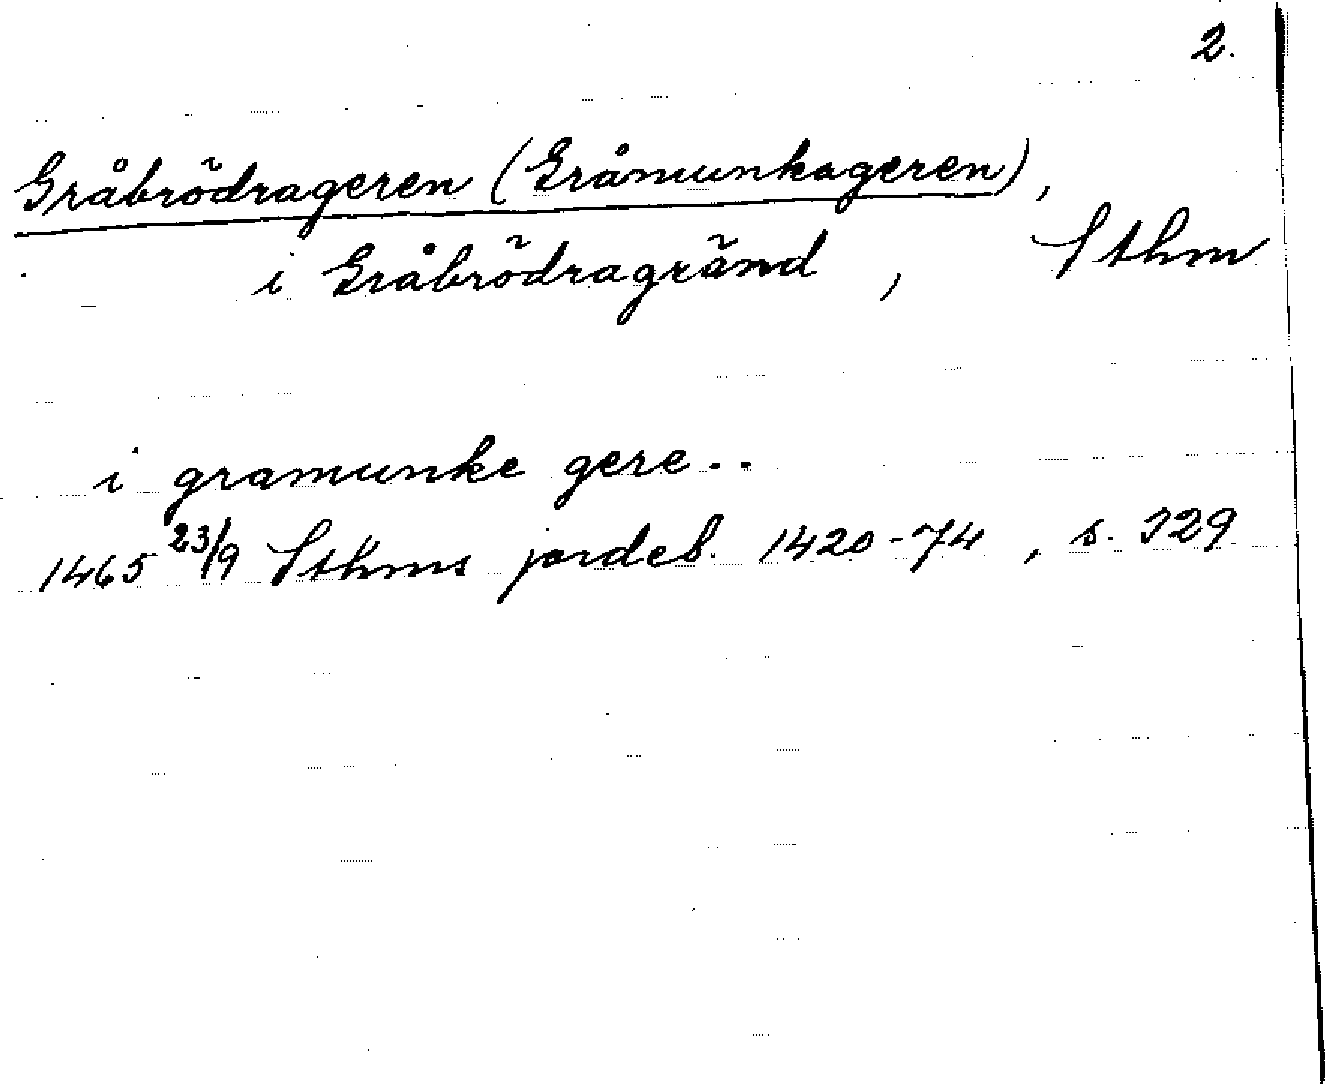 2.
Gråbrödrageren (Gråmunkageren),
i Gråbrödragränd, Sthm
i gramunke gere..
1465 23/9 Sthms jordeb. 1420-74, s. 329